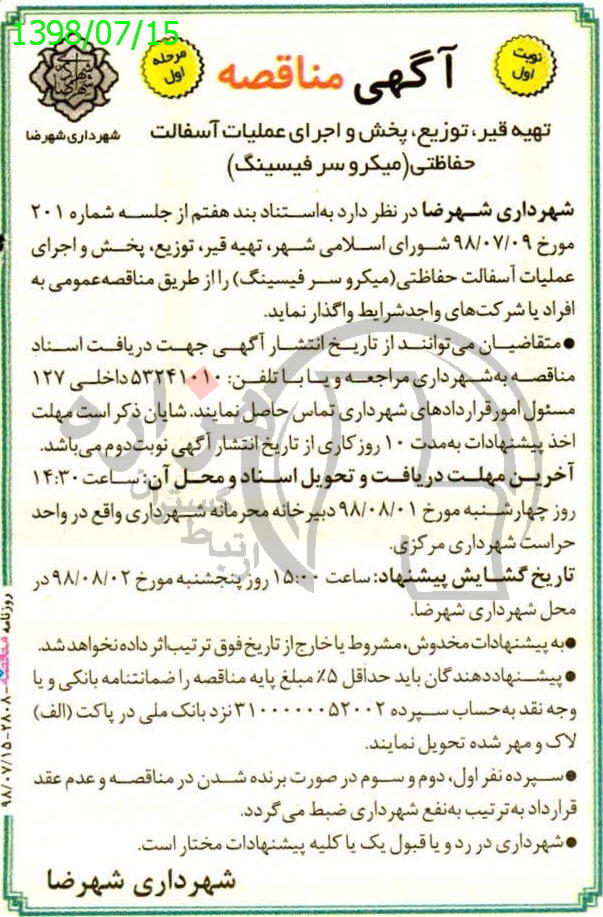 1398/07/15
نوبت اول
آگهی مناقصه
مرحله اول
شهرداری شهرضا
تهیه قیر، توزیع، پخش و اجرای عملیات آسفالت
حفاظتی(میکرو سر فیسینگ)
شهرداری شهرضا در نظر دارد به‌استناد بند هفتم از جلسه شماره ۲۰۱
مورخ ۹۸/۰۷/۰۹ شورای اسلامی شهر، تهیه قیر، توزیع، پخش و اجرای
عملیات آسفالت حفاظتی(میکرو سر فیسینگ) را از طریق مناقصه‌عمومی به
افراد یا شرکت‌های واجدشرایط واگذار نماید.
● متقاضیان می‌توانند از تاریخ انتشار آگهی جهت دریافت اسناد
مناقصه به‌شهرداری مراجعه و یا با تلفن: ۵۳۲۴۱۰۱۰ داخلی ۱۲۷
مسئول امورقراردادهای شهرداری تماس حاصل نمایند. شایان ذکر است مهلت
اخذ پیشنهادات به‌مدت ۱۰ روز کاری از تاریخ انتشار آگهی نوبت‌دوم می‌باشد.
آخرین مهلت دریافت و تحویل اسناد و محل آن: ساعت ۱۴:۳۰
روز چهارشنبه مورخ ۹۸/۰۸/۰۱ دبیرخانه محرمانه شهرداری واقع در واحد
حراست شهرداری مرکزی.
تاریخ گشایش پیشنهاد: ساعت ۱۵:۰۰ روز پنجشنبه مورخ ۹۸/۰۸/۰۲ در
محل شهرداری شهرضا.
● به پیشنهادات مخدوش، مشروط یا خارج از تاریخ فوق ترتیب‌اثر داده نخواهد شد.
● پیشنهاددهندگان باید حداقل ۵٪ مبلغ پایه مناقصه را ضمانتنامه بانکی و یا
وجه نقد به‌حساب سپرده ۳۱۰۰۰۰۰۰۵۲۰۰۲ نزد بانک ملی در پاکت (الف)
لاک و مهر شده تحویل نمایند.
● سپرده نفر اول، دوم و سوم در صورت برنده شدن در مناقصه و عدم عقد
قرارداد به‌ترتیب به‌نفع شهرداری ضبط می‌گردد.
● شهرداری در رد و یا قبول یک یا کلیه پیشنهادات مختار است.
شهرداری شهرضا
روزنامه مناقصه - ۲۸۰۸ - ۹۸/۰۷/۱۵
هزاره
گستران
ارتباط